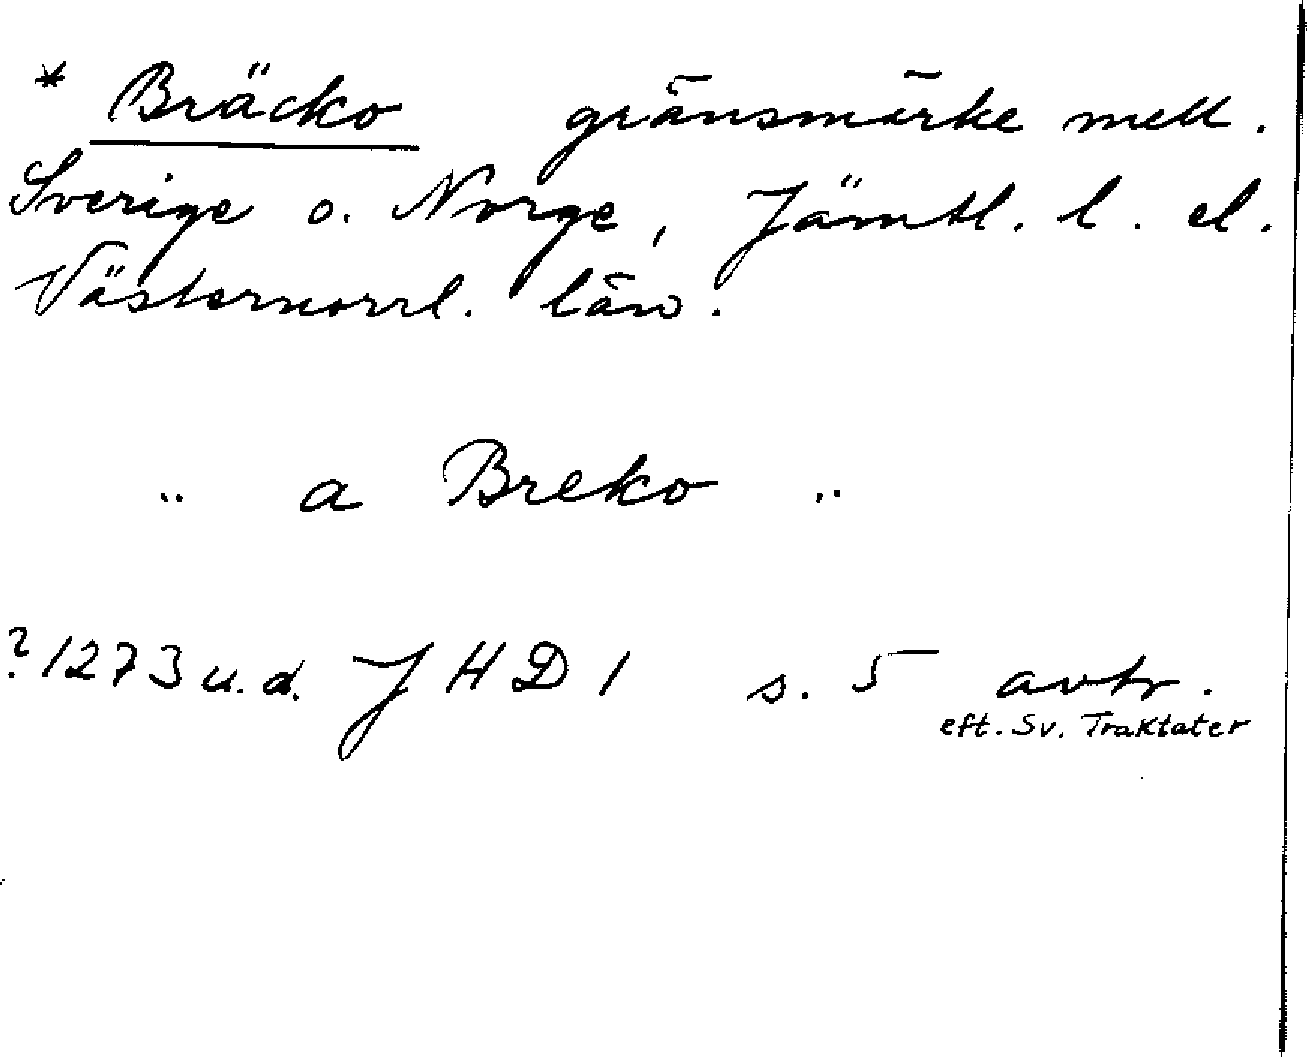 * Bräcko gränsmärke mell.
Sverige o. Norge, Jämtl. l. el.
Västernorrl. län.
" a Breko "
? 1273 u.d. JHD 1 s. 5 avtr.
eft. Sv. Traktater